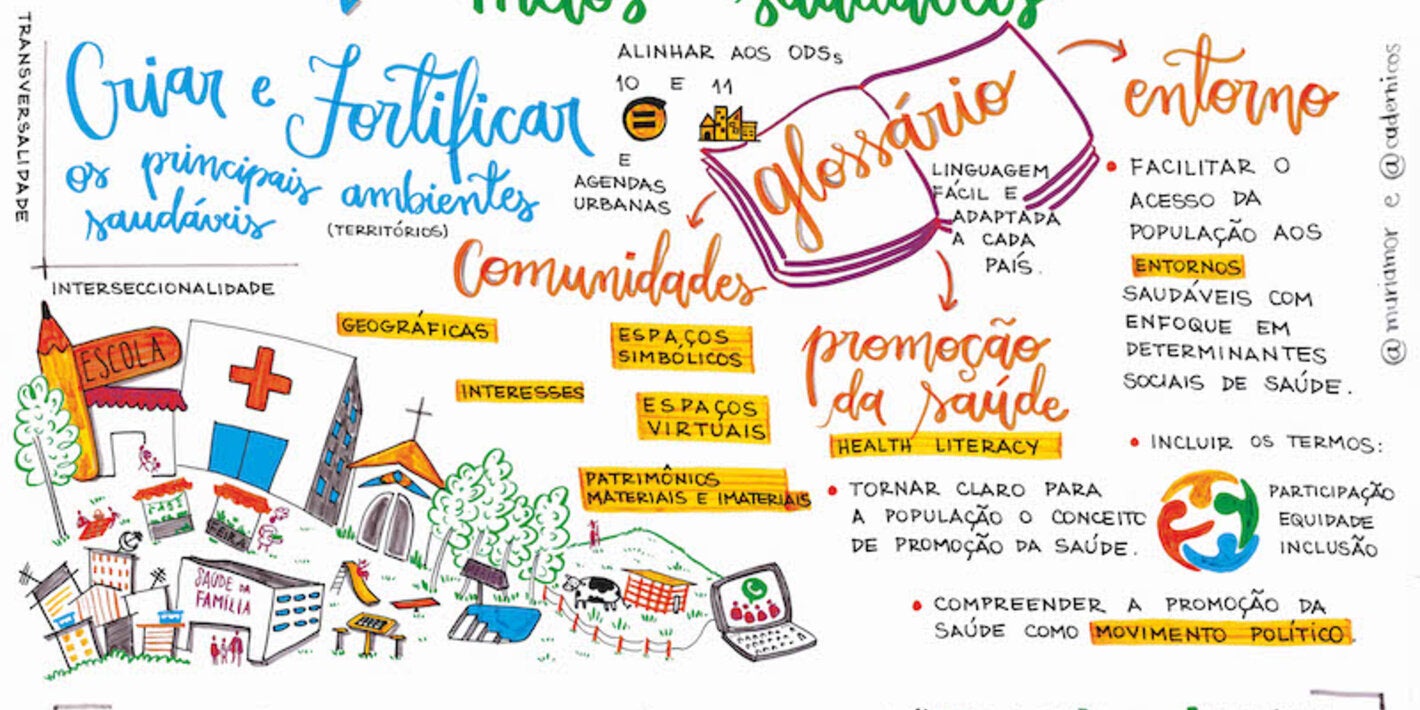 meios saudáveis
TRANSVERSALIDADE
Criar e Fortificar
os principais ambientes
saudávis
(TERRITÓRIOS)
INTERSECCIONALIDADE
ALINHAR AOS ODSs
10 E 11
E
AGENDAS
URBANAS
glossário
LINGUAGEM
FÁCIL E
ADAPTADA
A CADA
PAÍS.
Comunidades
GEOGRÁFICAS
ESPAÇOS
SIMBÓLICOS
INTERESSES
ESPAÇOS
VIRTUAIS
PATRIMÔNIOS
MATERIAIS E IMATERIAIS
ESCOLA
SAÚDE DA
FAMÍLIA
promoção
da saúde
HEALTH LITERACY
TORNAR CLARO PARA
A POPULAÇÃO O CONCEITO
DE PROMOÇÃO DA SAÚDE.
COMPREENDER A PROMOÇÃO DA
SAÚDE COMO MOVIMENTO POLÍTICO.
entorno
FACILITAR O
ACESSO DA
POPULAÇÃO AOS
ENTORNOS
SAUDÁVEIS COM
ENFOQUE EM
DETERMINANTES
SOCIAIS DE SAÚDE.
INCLUIR OS TERMOS:
PARTICIPAÇÃO
EQUIDADE
INCLUSÃO
@muriamor e @cadernicos